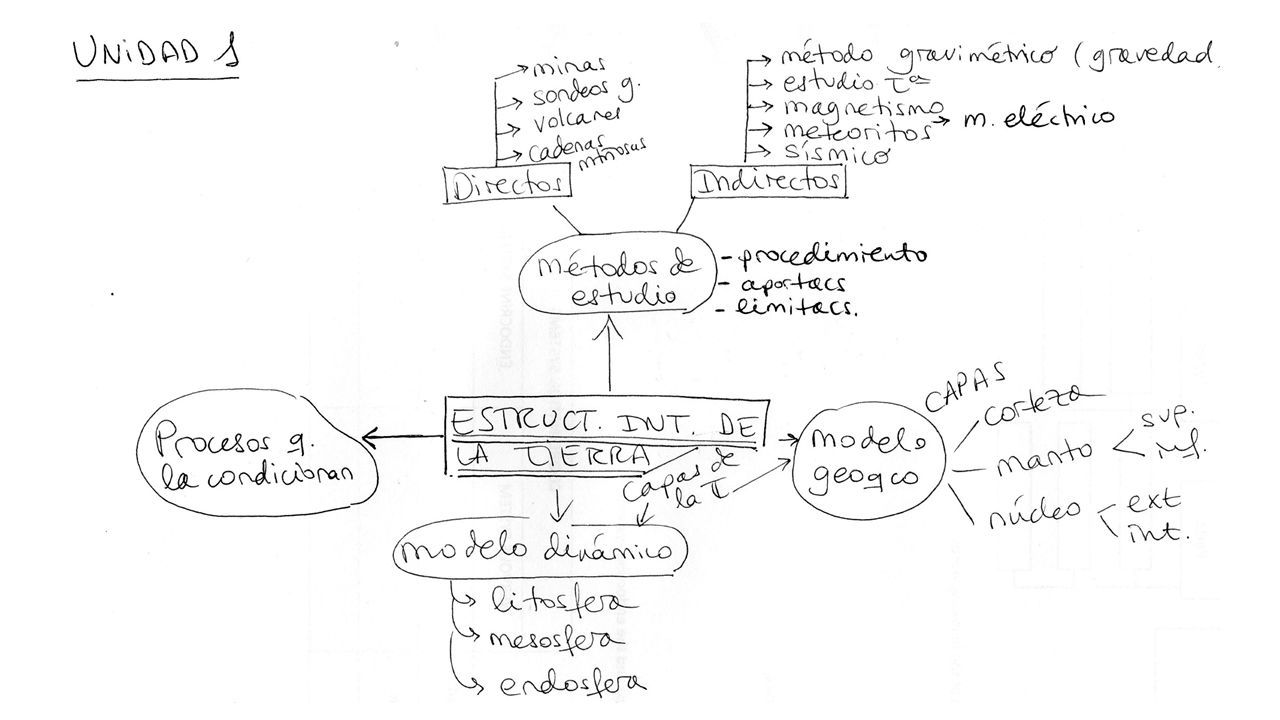 UNIDAD 1
minas
sondeos g.
volcanes
cadenas
Directos
método gravimétrico (gravedad
estudio Tª
magnetismo
meteoritos → m. eléctrico
sísmico
Indirectos
métodos de
estudio
- procedimiento
- aportacs
- limitacs.
ESTRUCT. INT. DE
LA TIERRA
Procesos q.
la condicionan
capas de
la T
modelo
geoqco
CAPAS
corteza
manto
sup.
inf.
núcleo
ext
int.
modelo dinámico
litosfera
mesosfera
endosfera